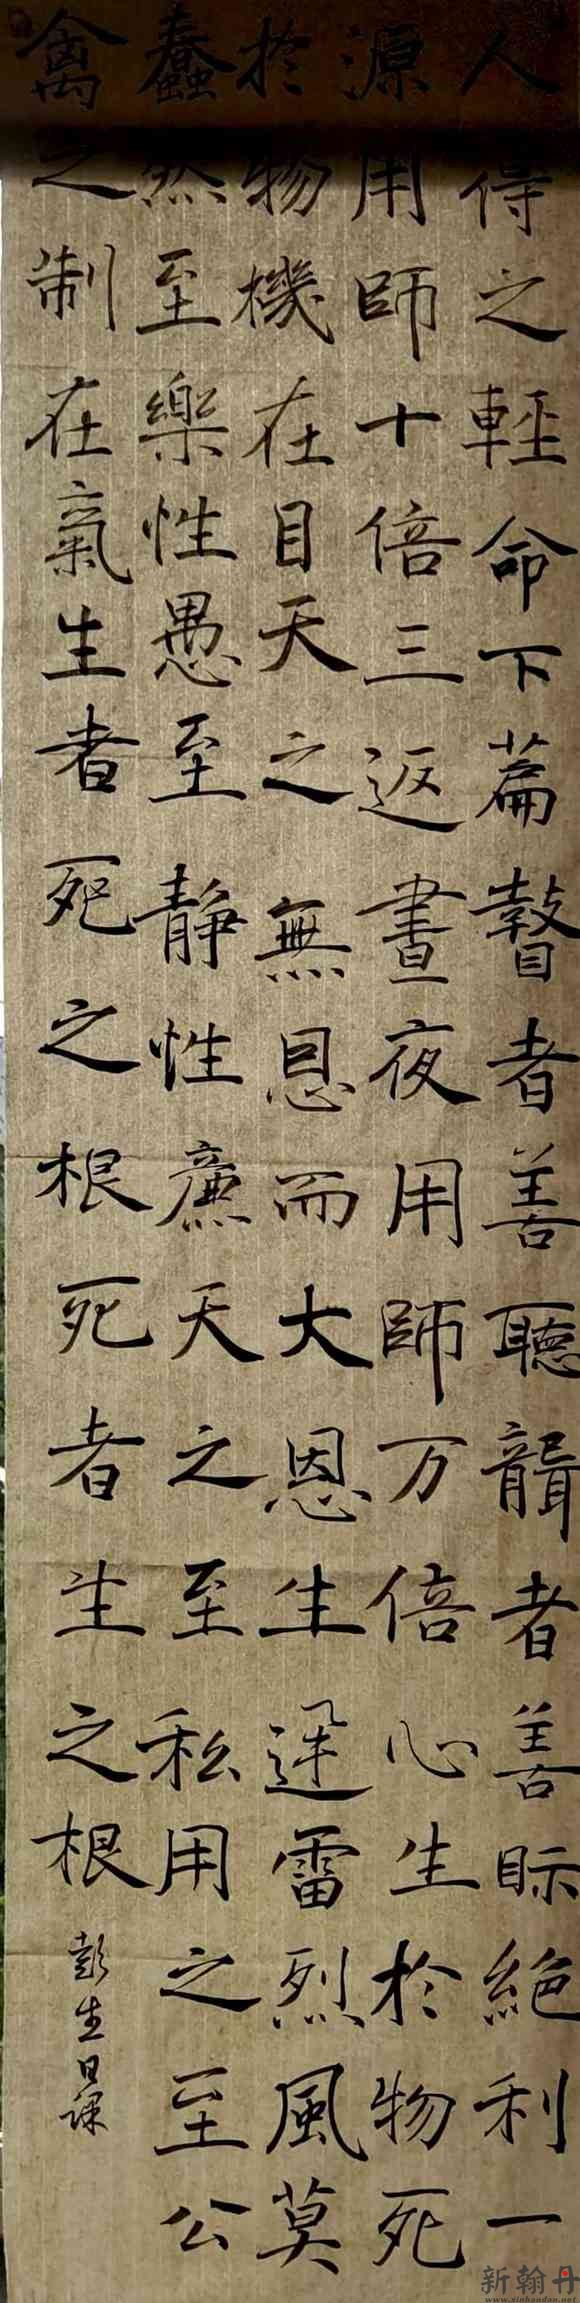 人得之輕命下篇瞽者善聽聾者善眎絕利一
源用師十倍三返晝夜用師万倍心生於物死
於物機在目天之無恩而大恩生迅雷烈風莫
蠢然至樂性愚至靜性廉天之至私用之至公
禽之制在氣生者死之根死者生之根
彭生日課
新翰丹
www.xinhandan.net